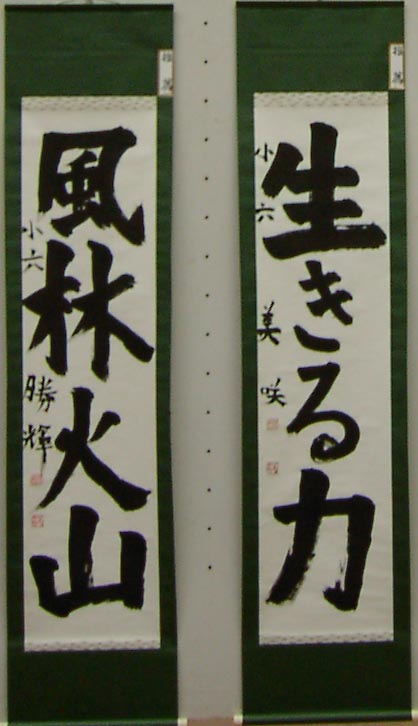 生きる力
小六 美咲
推薦
風林火山
小六 勝輝
推薦